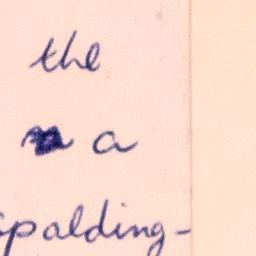 the
a
spalding-